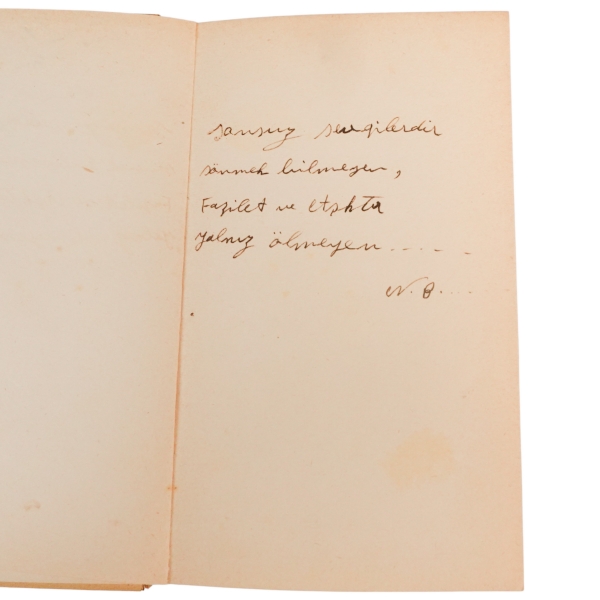 sonsuz sevgilerdir
sönmek bilmeyen,
Fazilet ve
Yalnız ölmeyen.....
N. B....